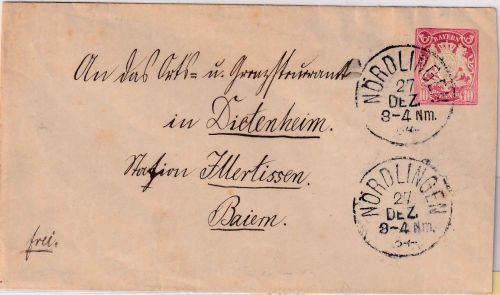 BAYERN
10 10
NÖRDLINGEN
27
DEZ.
3-4 Nm.
84
An das Orts- u. Grenzsteueramt
in Dietenheim.
Station Illertissen.
Baiern.
frei.
NÖRDLINGEN
27
DEZ.
3-4 Nm.
84